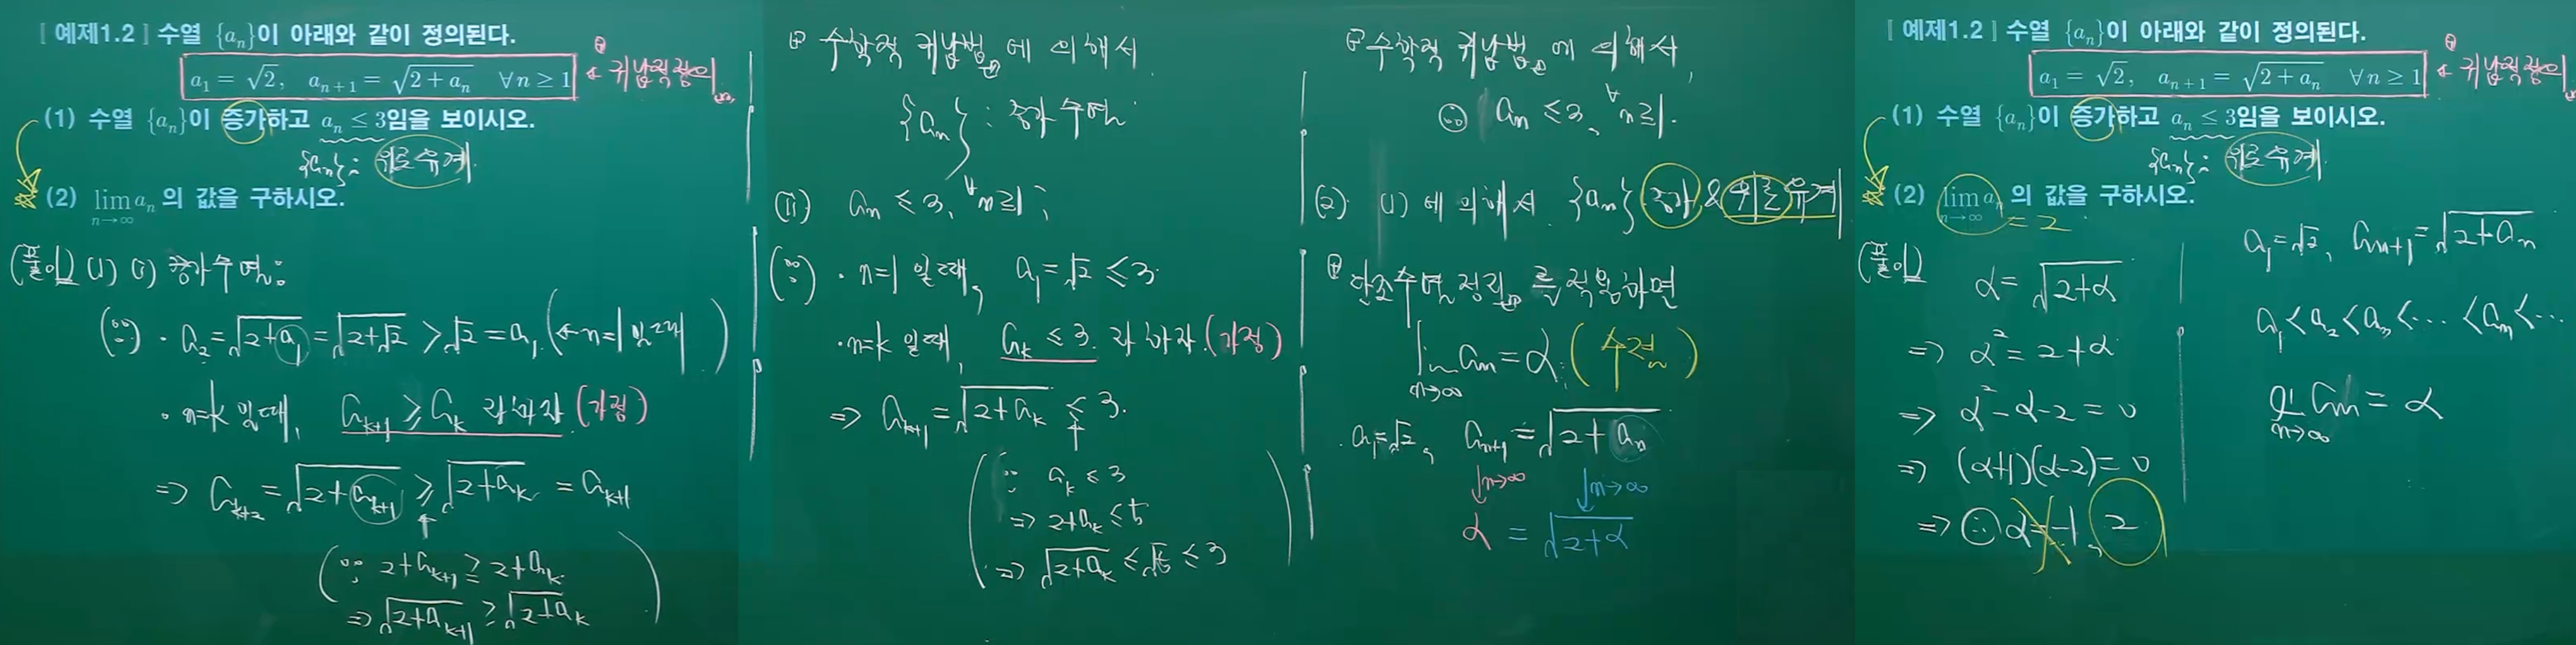 [ 예제1.2 ] 수열 {aₙ}이 아래와 같이 정의된다.
a₁ = √2, aₙ₊₁ = √(2 + aₙ) ∀n ≥ 1
← 귀납적정의
(1) 수열 {aₙ}이 증가하고 aₙ ≤ 3임을 보이시오.
{aₙ} : 위로유계
(2) lim_{n→∞} aₙ 의 값을 구하시오.
(풀이) (1) (i) 증가수열:
(∵) · a₂ = √(2+a₁) = √(2+√2) > √2 = a₁ (← n=1일때)
· n=k일때, aₖ₊₁ ≥ aₖ 라하자 (가정)
⇒ aₖ₊₂ = √(2+aₖ₊₁) ≥ √(2+aₖ) = aₖ₊₁
↑
(∵ 2+aₖ₊₁ ≥ 2+aₖ
⇒ √(2+aₖ₊₁) ≥ √(2+aₖ))
수학적 귀납법에 의해서
{aₙ} : 증가수열
(ii) aₙ ≤ 3, ∀n≥1 ;
(∵) · n=1일때, a₁ = √2 ≤ 3.
· n=k일때, aₖ ≤ 3 라하자 (가정)
⇒ aₖ₊₁ = √(2+aₖ) ≤ 3.
↑
(∵ aₖ ≤ 3
⇒ 2+aₖ ≤ 5
⇒ √(2+aₖ) ≤ √5 ≤ 3)
수학적 귀납법에 의해서,
∴ aₙ ≤ 3, ∀n≥1.
(2) (1)에 의해서 {aₙ} 증가 & 위로유계
단조수열정리를 적용하면
lim_{n→∞} aₙ = α. (수렴)
· a₁=√2, aₙ₊₁ = √(2+aₙ)
↓n→∞ ↓n→∞
α = √(2+α)
[ 예제1.2 ] 수열 {aₙ}이 아래와 같이 정의된다.
a₁ = √2, aₙ₊₁ = √(2 + aₙ) ∀n ≥ 1
← 귀납적정의
(1) 수열 {aₙ}이 증가하고 aₙ ≤ 3임을 보이시오.
{aₙ} : 위로유계
(2) lim_{n→∞} aₙ 의 값을 구하시오.
= 2
(풀이)
α = √(2+α)
⇒ α² = 2+α
⇒ α²-α-2 = 0
⇒ (α+1)(α-2) = 0
⇒ ∴ α = -1, 2
a₁=√2, aₙ₊₁=√(2+aₙ)
a₁<a₂<a₃<⋯<aₙ<⋯
lim_{n→∞} aₙ = α